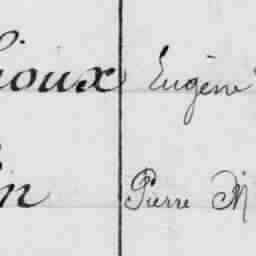 ioux Eugène
in Pierre M